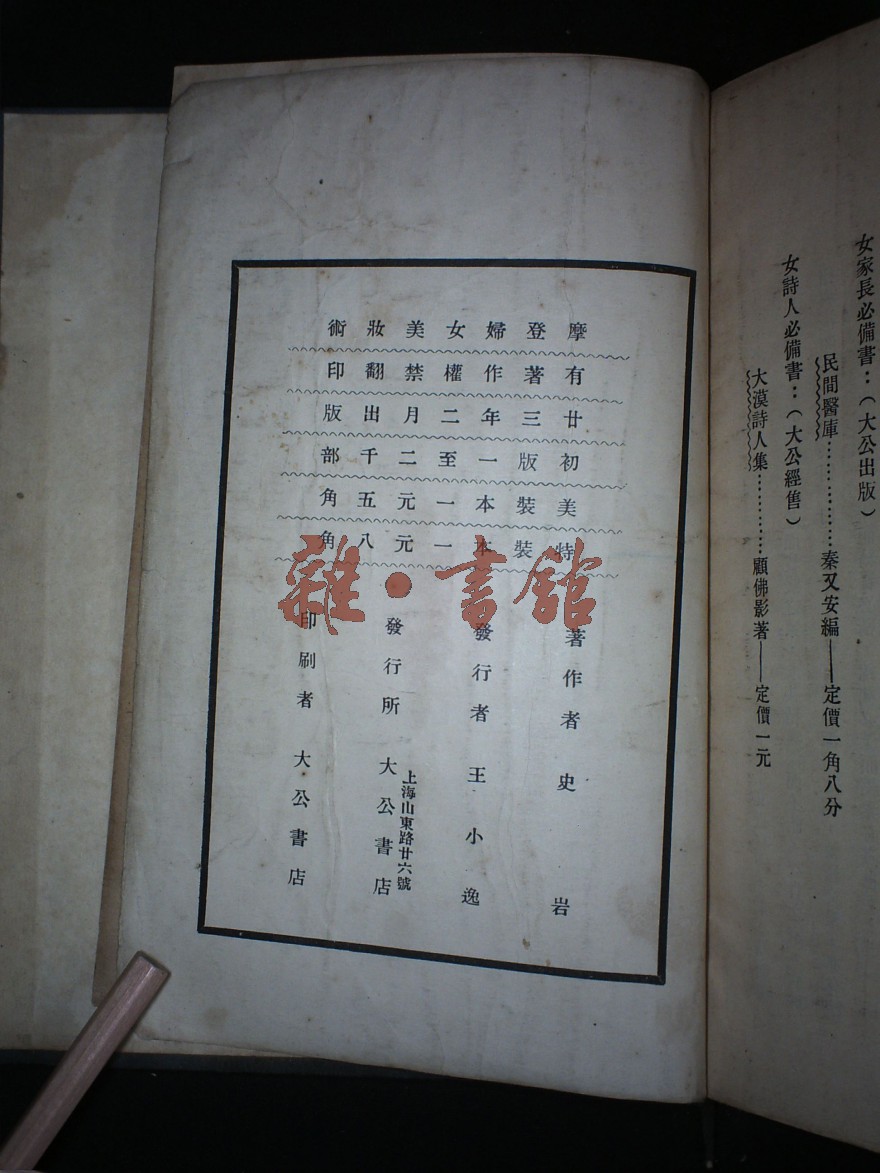 女家長必備書：（大公出版）
民間醫庫……………秦又安編——定價一角八分
女詩人必備書：（大公經售）
大漠詩人集…………顧佛影著——定價一元
摩登婦女美妝術
有著作權禁翻印
廿三年二月出版
初版一至二千部
美裝本一元五角
特裝本一元八角
著作者 史岩
發行者 王小逸
上海山東路廿六號
發行所 大公書店
印刷者 大公書店
雜·書館